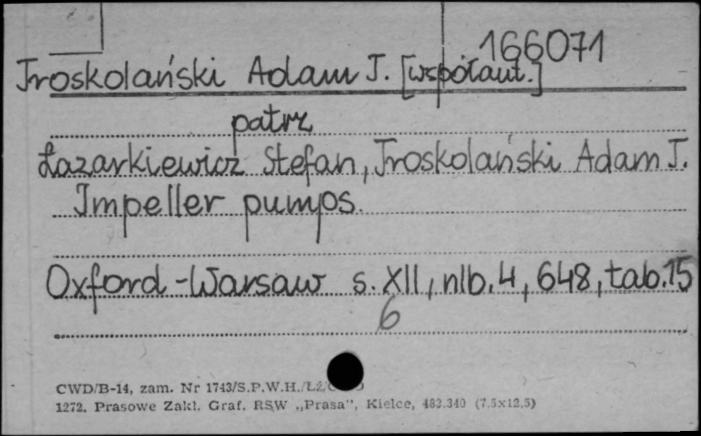 166071
Troskolański Adam T. [współaut.]
patrz
Łazarkiewicz Stefan, Troskolański Adam T.
Impeller pumps.
Oxford-Warsaw s. XII, nlb. 4, 648, tab. 15
6
CWD/B-14, zam. Nr 1743/S.P.W.H.
1272. Prasowe Zakł. Graf. RSW „Prasa”, Kielce, 483.340 (7.5x12.5)